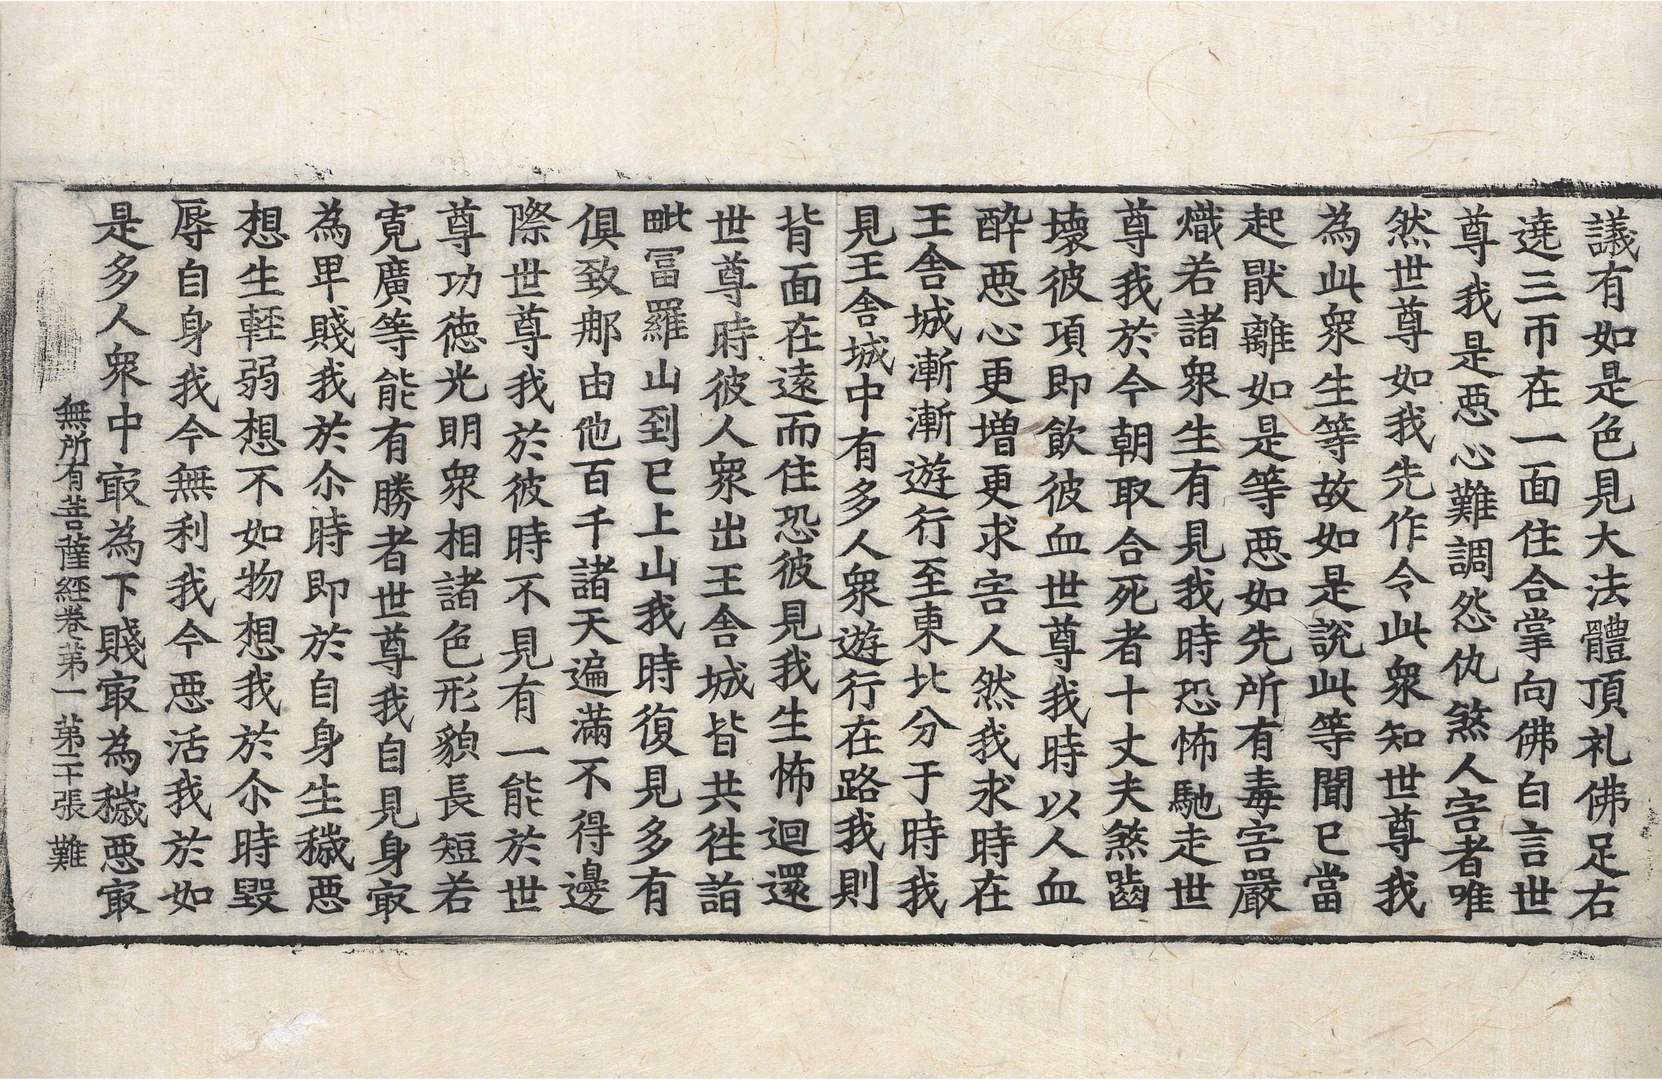 議有如是色見大法體頂礼佛足右
遶三帀在一面住合掌向佛白言世
尊我是惡心難調怨仇煞人害者唯
然世尊如我先作令此衆知世尊我
為此衆生等故如是說此等聞已當
起猒離如是等惡如先所有毒害嚴
熾若諸衆生有見我時恐怖馳走世
尊我於今朝取合死者十丈夫煞齧
壞彼項即飲彼血世尊我時以人血
醉惡心更增更求害人然我求時在
王舍城漸漸遊行至東北分于時我
見王舍城中有多人衆遊行在路我則
背面在遠而住恐彼見我生怖迴還
世尊時彼人衆出王舍城皆共往詣
毗冨羅山到已上山我時復見多有
俱致那由他百千諸天遍滿不得邊
際世尊我於彼時不見有一能於世
尊功徳光明衆相諸色形貌長短若
寬廣等能有勝者世尊我自見身㝡
為卑賤我於尒時即於自身生穢惡
想生輕弱想不如物想我於尒時毀
辱自身我今無利我今惡活我於如
是多人衆中㝡為下賤㝡為穢惡㝡
無所有菩薩經卷第一 第二十張 難